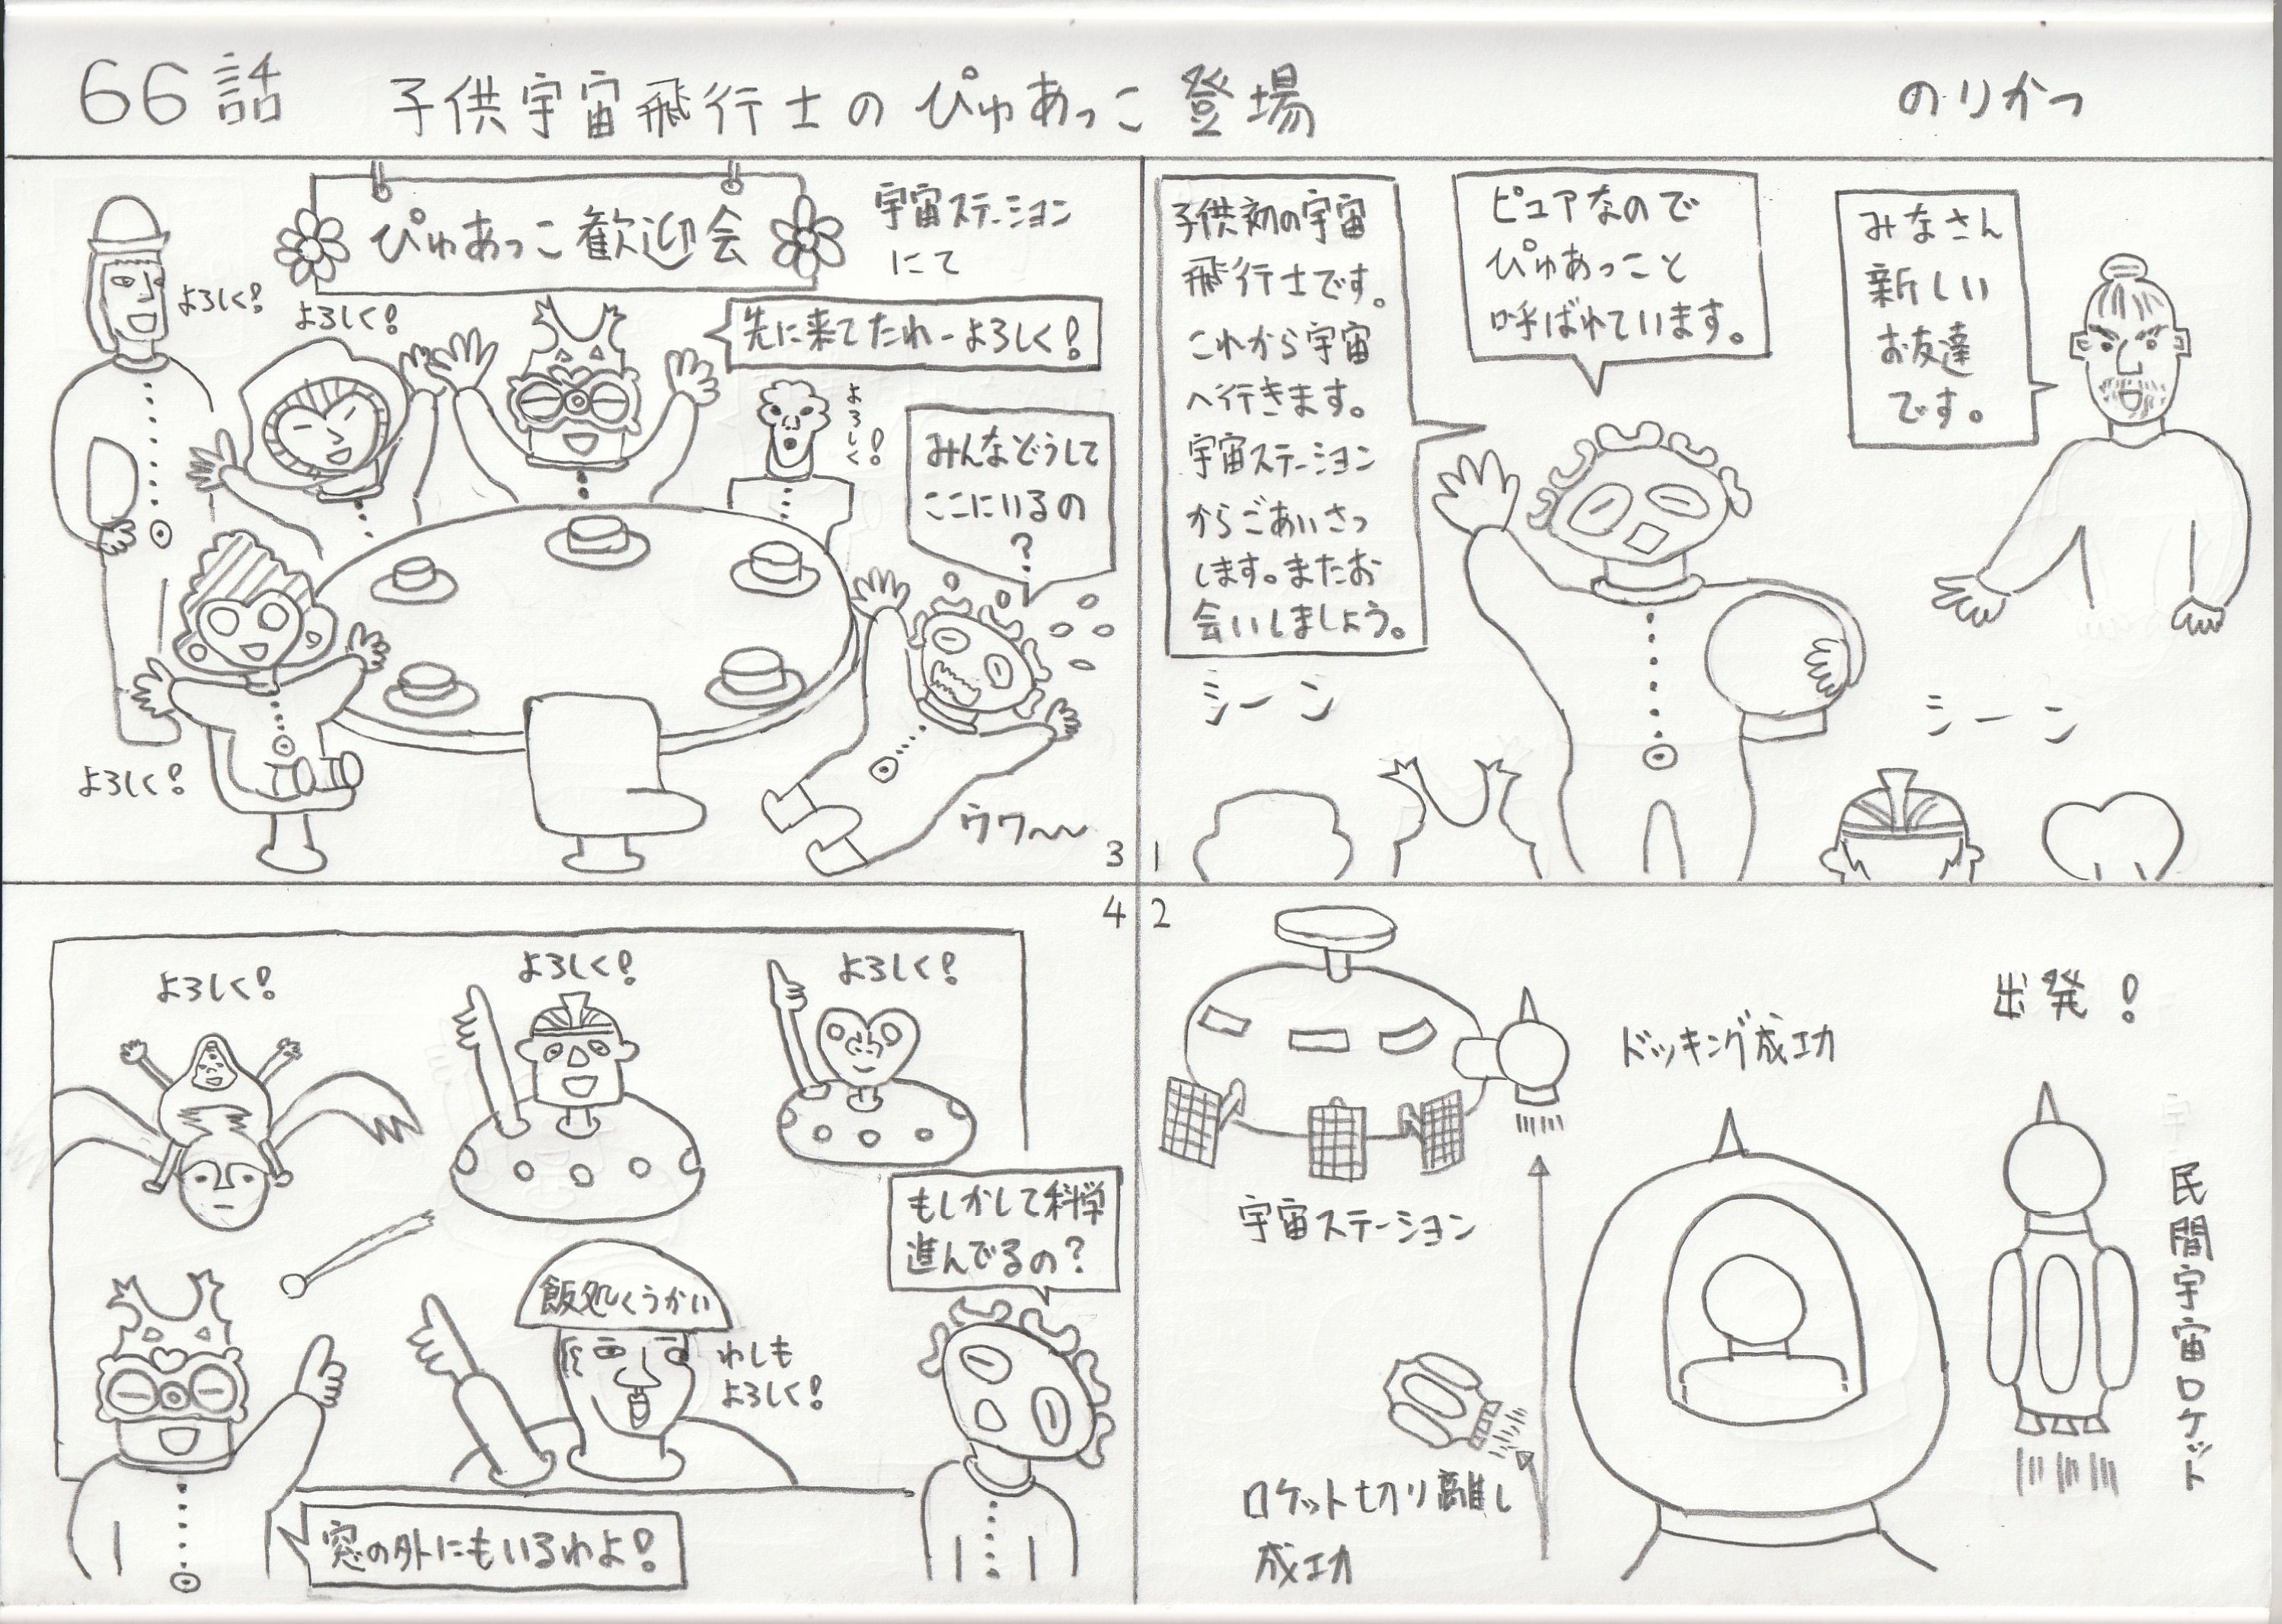 66話 子供宇宙飛行士のぴゅあっこ登場 のりかつ
みなさん
新しい
お友達
です。
ピュアなので
ぴゅあっこと
呼ばれています。
子供初の宇宙
飛行士です。
これから宇宙
へ行きます。
宇宙ステーション
からごあいさつ
します。またお
会いしましょう。
シーン
シーン
1
2
出発!
民間宇宙ロケット
ドッキング成功
宇宙ステーション
ロケット切り離し
成功
宇宙ステーション
にて
ぴゅあっこ歓迎会
よろしく!
よろしく!
先に来てたわーよろしく!
よろしく!
みんなどうして
ここにいるの
?
よろしく!
ウワ〜〜
3
4
よろしく!
よろしく!
よろしく!
もしかして科学
進んでるの?
飯処くうかい
わしも
よろしく!
窓の外にもいるわよ!